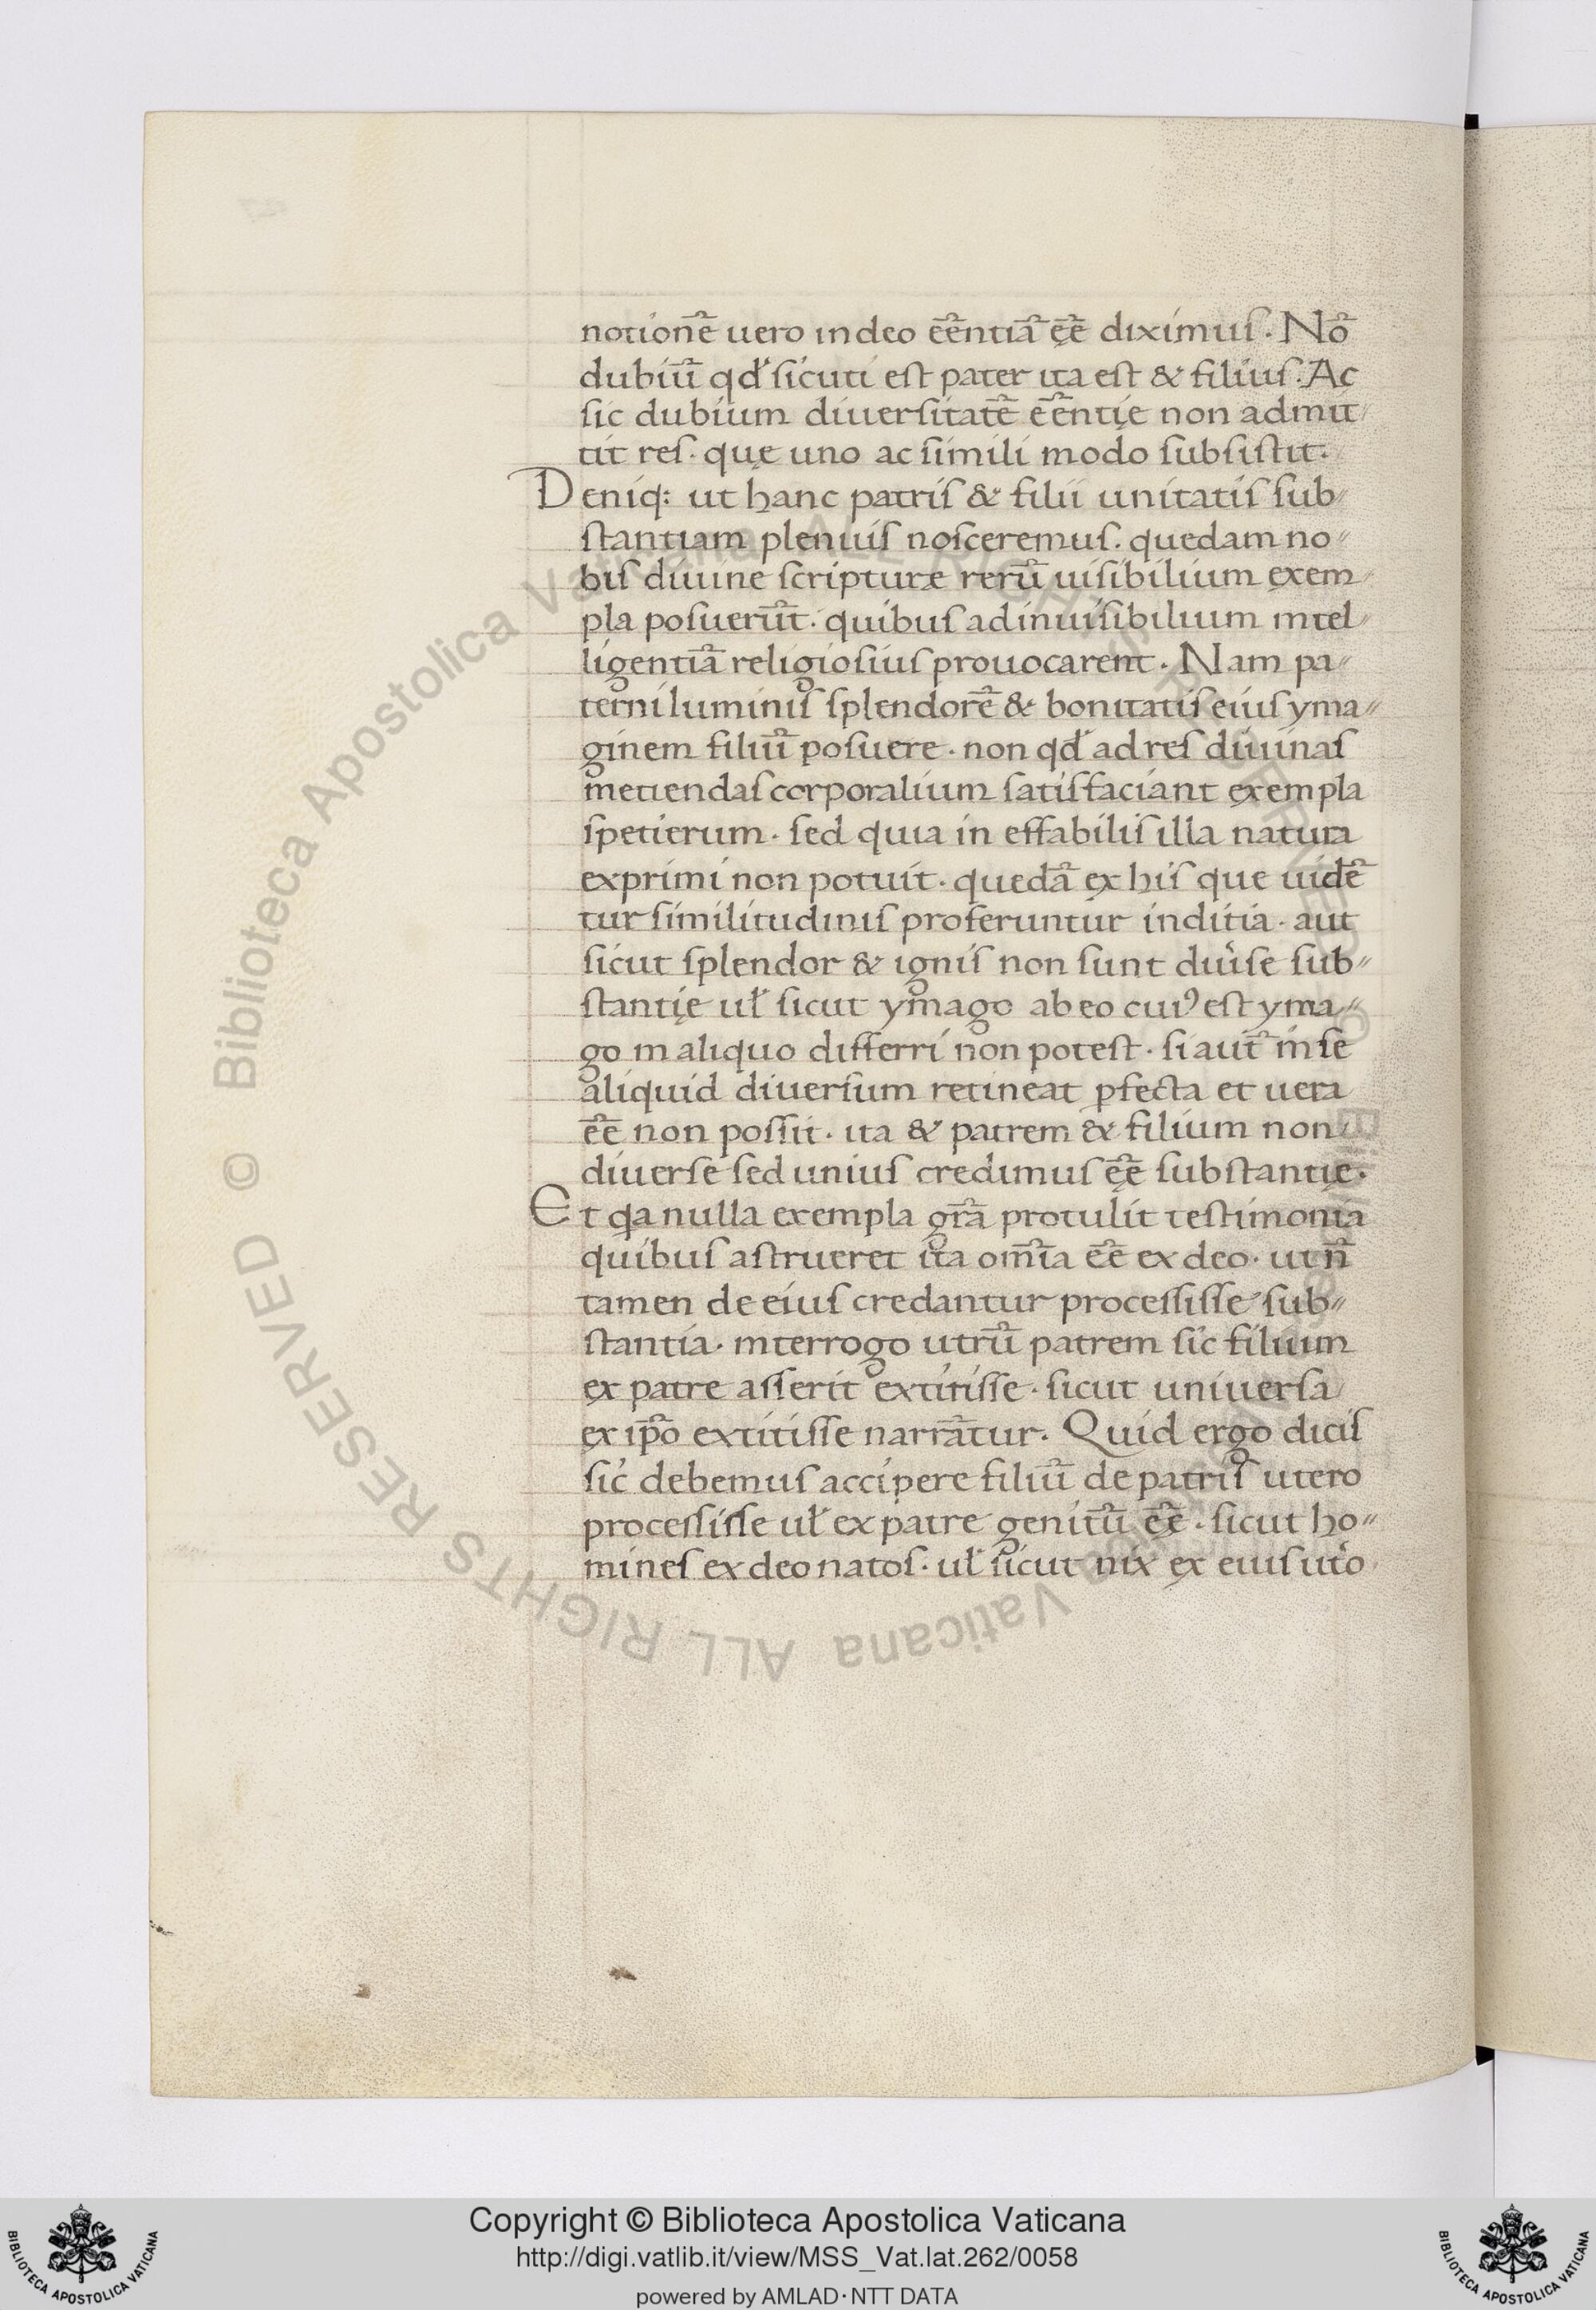 notionē uero in deo eēntiā eę̄ diximus. Nō
dubiū qđ sicuti est pater ita est & filius. Ac
sic dubium diuersitatē eēntię non admit
tit res. quę uno ac simili modo subsistit.
Deniq: ut hanc patris & filii unitatis sub
stantiam plenius nosceremus. quedam no
bis diuine scripturæ rerū uisibilium exem
pla posuerūt. quibus ad inuisibilium intel
ligentiā religiosius prouocarent. Nam pa
terni luminis splendorē & bonitatis eius yma
ginem filiū posuere. non qđ ad res diuinas
metiendas corporalium satisfaciant exempla
spetierum. sed quia in effabilis illa natura
exprimi non potuit. quedā ex his que uidē
tur similitudinis proferuntur inditia. aut
sicut splendor & ignis non sunt diu̓se sub
stantię ul̓ sicut ymago ab eo cuiꝰ est yma
go in aliquo differri non potest. si aut̄ in se
aliquid diuersum retineat ꝑfecta et uera
eē non possit. ita & patrem & filium non
diuerse sed unius credimus eę̄ substantię.
Et qa nulla exempla grā protulit testimonia
quibus astrueret ita om̄ia eē ex deo. ut n̄
tamen de eius credantur processisse sub
stantia. interrogo utrū patrem sic filium
ex patre asserit extitisse. sicut uniuersa
ex ip̄o extitisse narrātur. Quid ergo dicis
sic debemus accipere filiū de patris utero
processisse ul̓ ex patre genitū eę̄. sicut ho
mines ex deo natos. ul̓ sicut nix ex eius ut̓o
© Biblioteca Apostolica Vaticana ALL RIGHTS RESERVED © Biblioteca Apostolica Vaticana ALL RIGHTS RESERVED
Copyright © Biblioteca Apostolica Vaticana
http://digi.vatlib.it/view/MSS_Vat.lat.262/0058
powered by AMLAD·NTT DATA
BIBLIOTECA APOSTOLICA VATICANA
BIBLIOTECA APOSTOLICA VATICANA